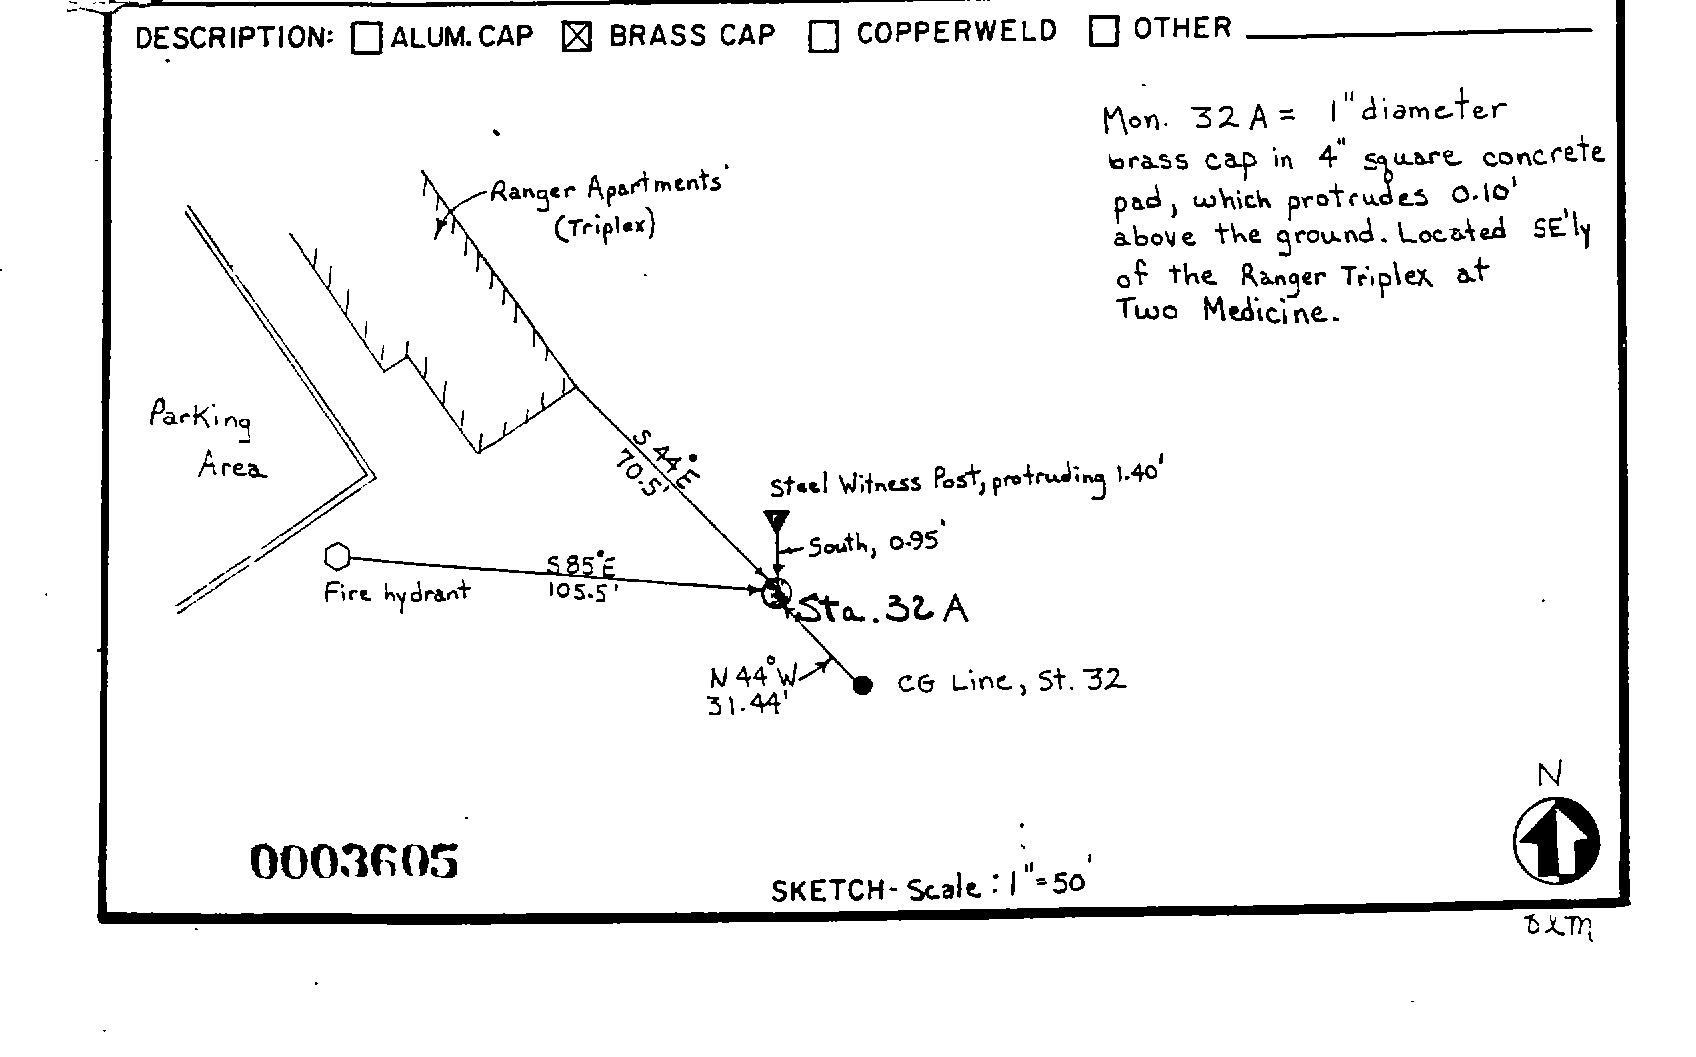 DESCRIPTION: ALUM. CAP BRASS CAP COPPERWELD OTHER
Mon. 32 A = 1" diameter
brass cap in 4" square concrete
pad, which protrudes 0.10'
above the ground. Located SE'ly
of the Ranger Triplex at
Two Medicine.
Ranger Apartments
(Triplex)
Parking
Area
S 44° E
70.5'
Steel Witness Post, protruding 1.40'
South, 0.95'
S 85° E
105.5'
Fire hydrant
Sta. 32 A
N 44° W
31.44'
CG Line, St. 32
N
0003605
SKETCH - Scale : 1" = 50'